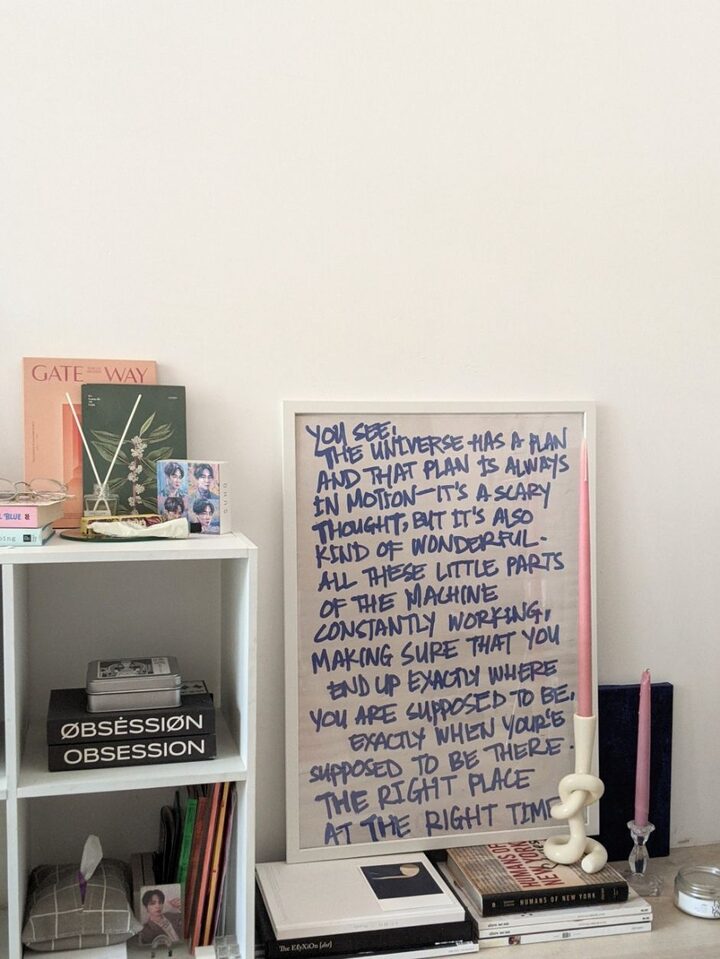 GATE WAY
BLUE &
ping
OHUU
ØBSĖSSIØN
OBSESSION
YOU SEE,
THE UNIVERSE HAS A PLAN
AND THAT PLAN IS ALWAYS
IN MOTION—IT'S A SCARY
THOUGHT, BUT IT'S ALSO
KIND OF WONDERFUL.
ALL THESE LITTLE PARTS
OF THE MACHINE
CONSTANTLY WORKING,
MAKING SURE THAT YOU
END UP EXACTLY WHERE
YOU ARE SUPPOSED TO BE,
EXACTLY WHEN YOUR'E
SUPPOSED TO BE THERE.
THE RIGHT PLACE
AT THE RIGHT TIME
The EXyXiOn [dot]
HUMANS OF
NEW YORK
HUMANS OF NEW YORK